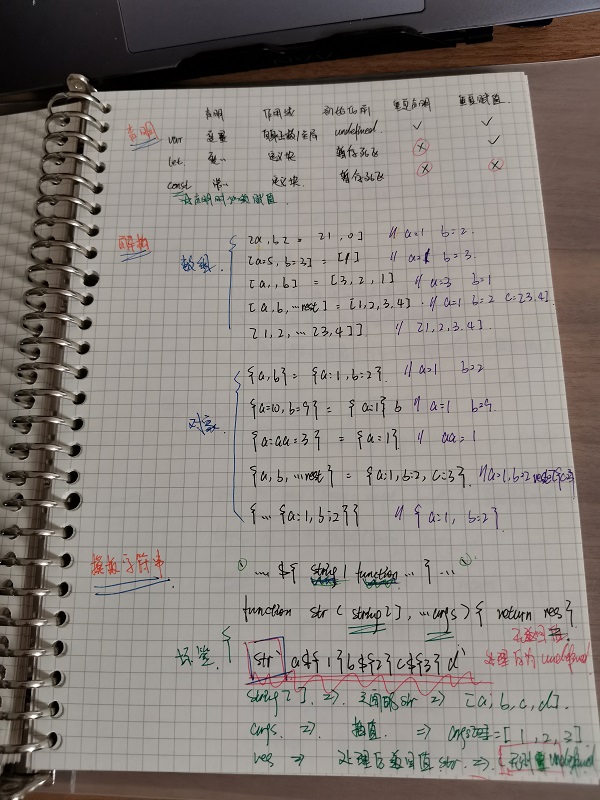 声明 作用域 初始化前 重复声明 重复赋值
声明
var 变量 undefined ✓ ✓
let 变.. 定义块 暂存死区 ⓧ ✓
const 常.. 定义块. 暂存死区 ⓧ ⓧ
声明时必须赋值
解构
数组.
[a, b] = [1, 0] // a=1 b=2.
[a=5, b=3] = [1] // a=1 b=3.
[a, , b] = [3, 2, 1] // a=3 b=1
[a, b, ...rest] = [1,2,3,4]. // a=1 b=2 c=[3,4].
[1, 2, ...[3,4]] // [1,2,3,4].
对象
{a, b} = {a:1, b:2} // a=1 b=2
{a=10, b=9} = {a:1} b // a=1 b=9.
{a=aa=3} = {a:1} // aa=1
{a, b, ...rest} = {a:1, b:2, c:3}. // a=1, b=2 rest={c:3}
{...{a:1, b:2}} // {a:1, b:2}.
模板字符串
... ${ string | function ... } ...
function str ( string[], ...args ) { return res }
标签
str` a${1}b${2}c${3}d`
处理 undefined
string[] => str => [a, b, c, d].
args. => 插值 => args = [1, 2, 3]
res => 处理后返回值 str => undefined